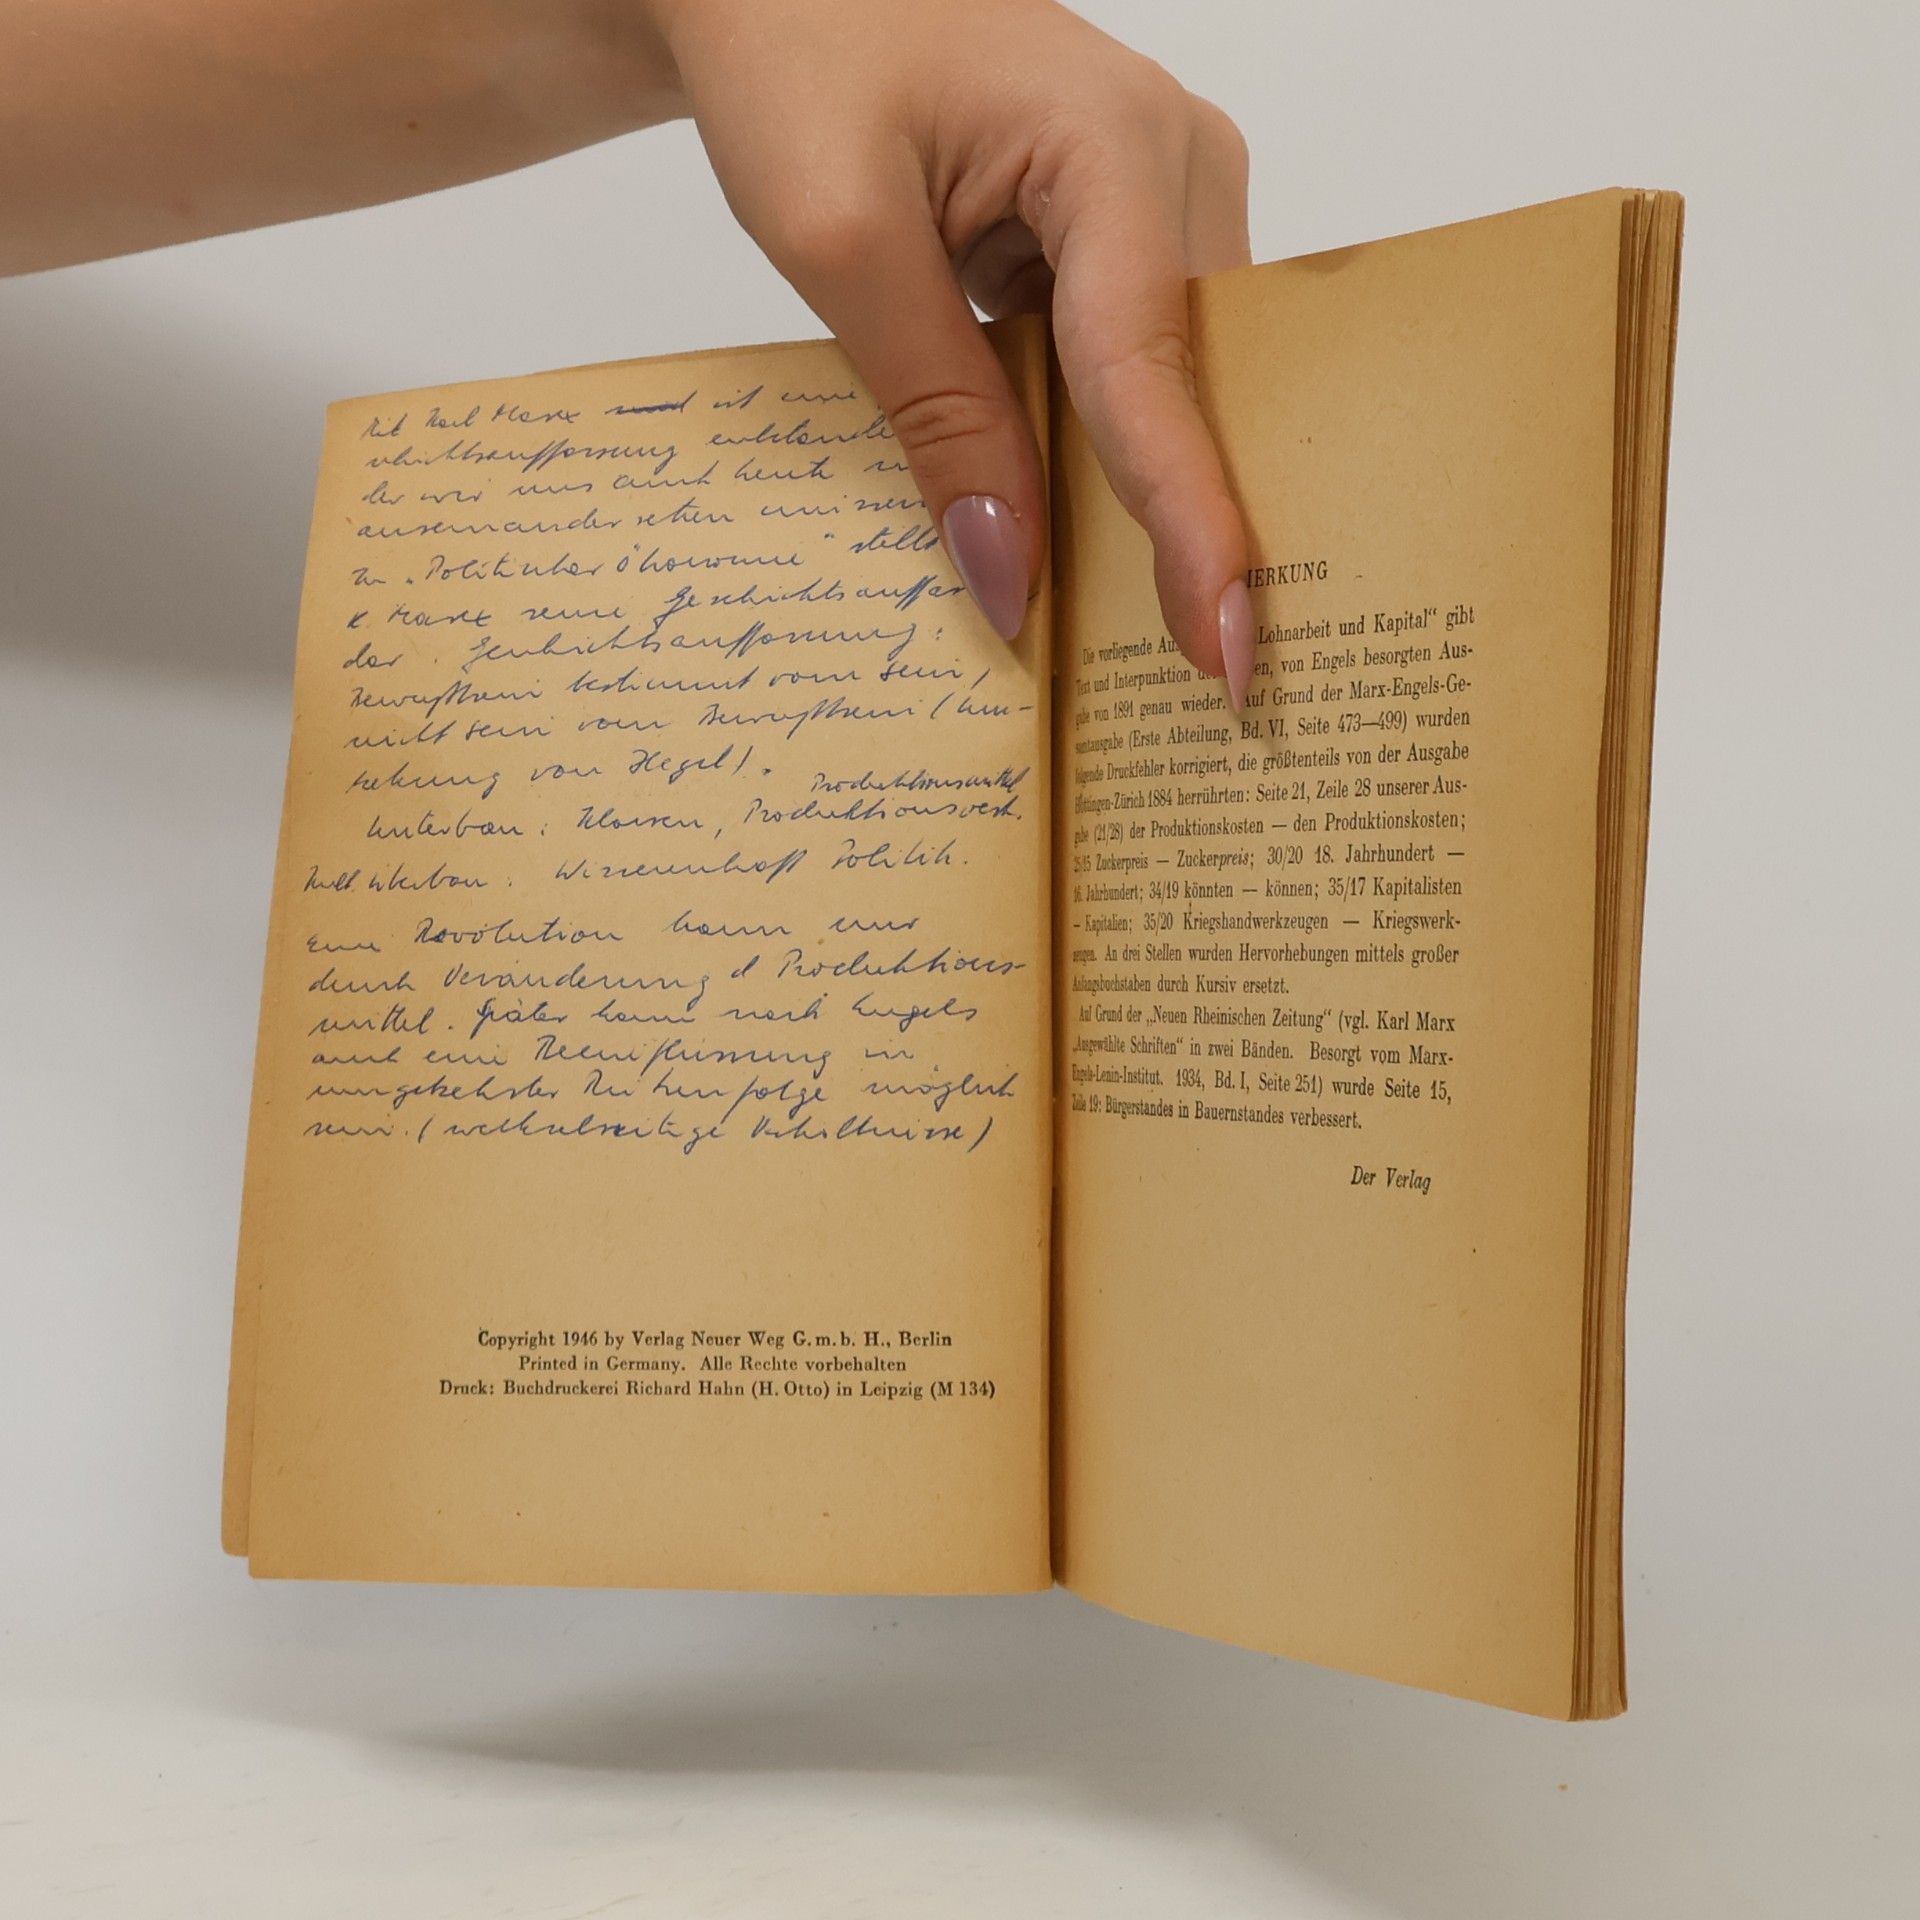 Mit Karl Marx ist eine
schichtsauffassung entstande
der wir uns auch heute
auseinander setzen müssen
In „Politischer Ökonomie" stellt
K. Marx seine Geschichtsauffas
dar. Geschichtsauffassung:
Bewußtsein bestimmt vom Sein,
nicht Sein vom Bewußtsein (Um-
kehrung von Hegel).
Produktionsmittel
Unterbau: Klassen, Produktionsverh.
Kult. Überbau: Wissenschaft Politik.
Eine Revolution kann nur
durch Veränderung d Produktions-
mittel. Später kann nach Engels
auch eine Beeinflussung in
umgekehrter Reihenfolge möglich
sein. (wechselseitige Verhältnisse)
Copyright 1946 by Verlag Neuer Weg G.m.b.H., Berlin
Printed in Germany. Alle Rechte vorbehalten
Druck: Buchdruckerei Richard Hahn (H. Otto) in Leipzig (M 134)
MERKUNG
Die vorliegende Aus Lohnarbeit und Kapital" gibt
Text und Interpunktion der en, von Engels besorgten Aus-
gabe von 1891 genau wieder. Auf Grund der Marx-Engels-Ge-
samtausgabe (Erste Abteilung, Bd. VI, Seite 473—499) wurden
folgende Druckfehler korrigiert, die größtenteils von der Ausgabe
Hottingen-Zürich 1884 herrührten: Seite 21, Zeile 28 unserer Aus-
gabe (21/28) der Produktionskosten — den Produktionskosten;
Zuckerpreis — Zuckerpreis; 30/20 18. Jahrhundert —
16. Jahrhundert; 34/19 könnten — können; 35/17 Kapitalisten
— Kapitalien; 35/20 Kriegshandwerkzeugen — Kriegswerk-
zeugen. An drei Stellen wurden Hervorhebungen mittels großer
Anfangsbuchstaben durch Kursiv ersetzt.
Auf Grund der „Neuen Rheinischen Zeitung" (vgl. Karl Marx
„Ausgewählte Schriften" in zwei Bänden. Besorgt vom Marx-
Engels-Lenin-Institut. 1934, Bd. I, Seite 251) wurde Seite 15,
Zeile 19: Bürgerstandes in Bauernstandes verbessert.
Der Verlag